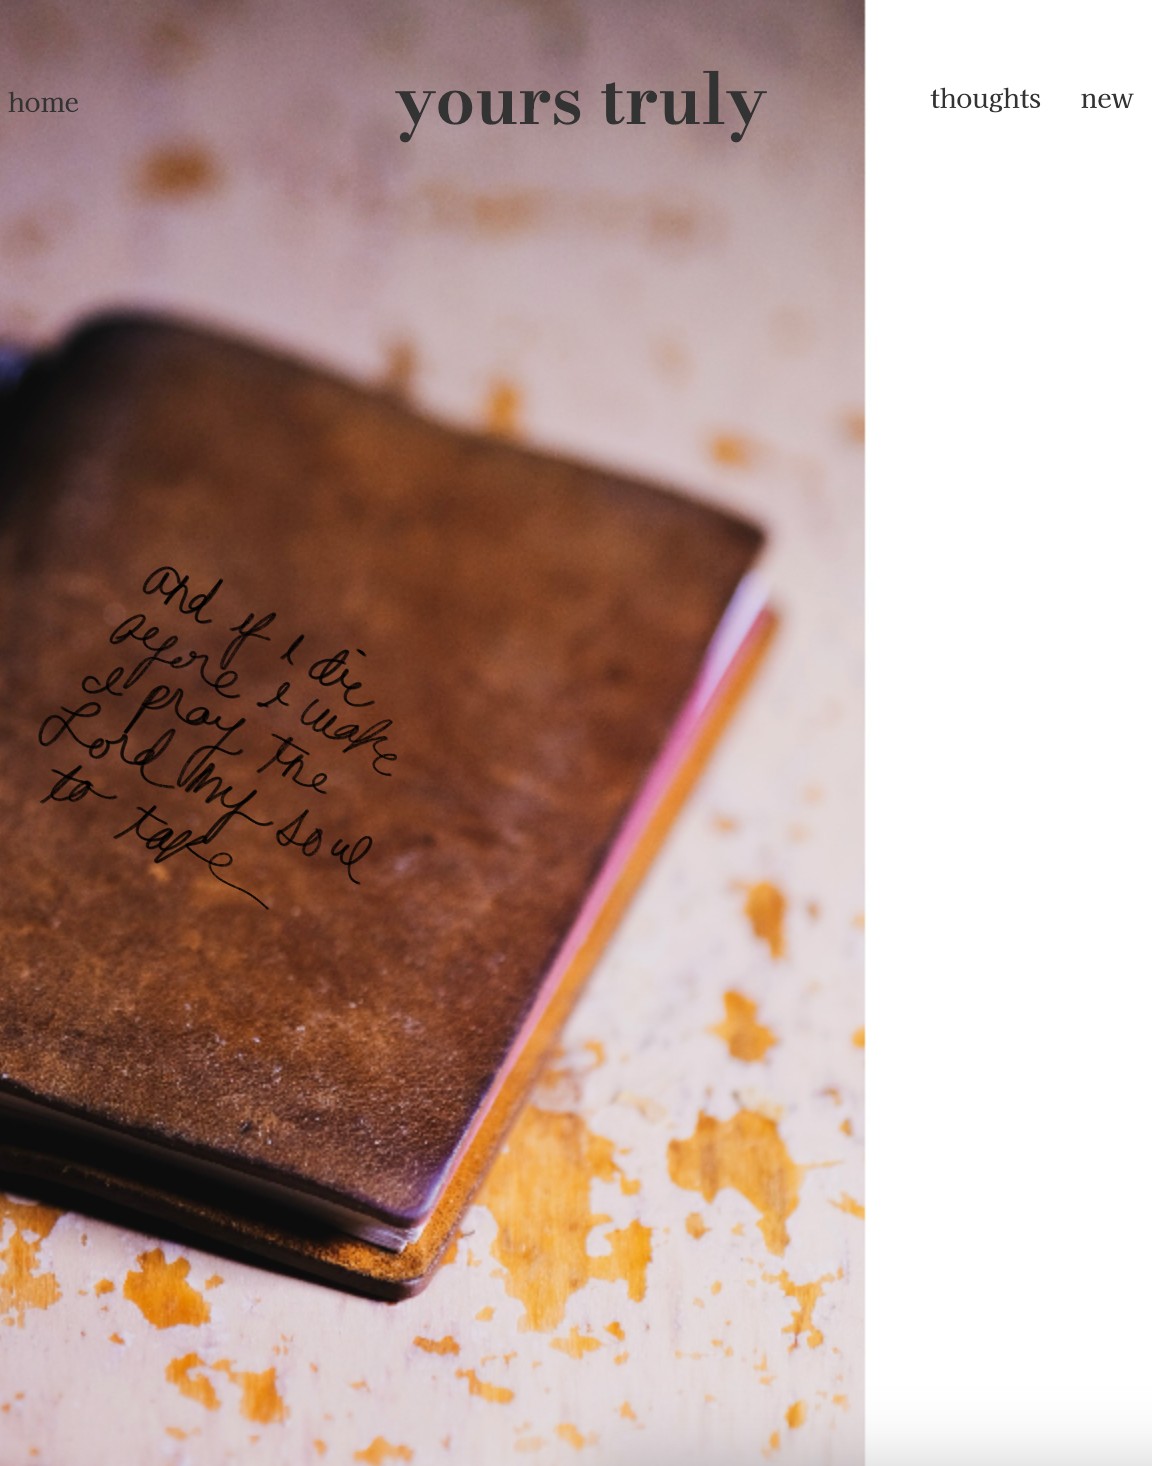 home
yours truly
thoughts
new
and if I die
before I wake
I pray the
Lord my soul
to take